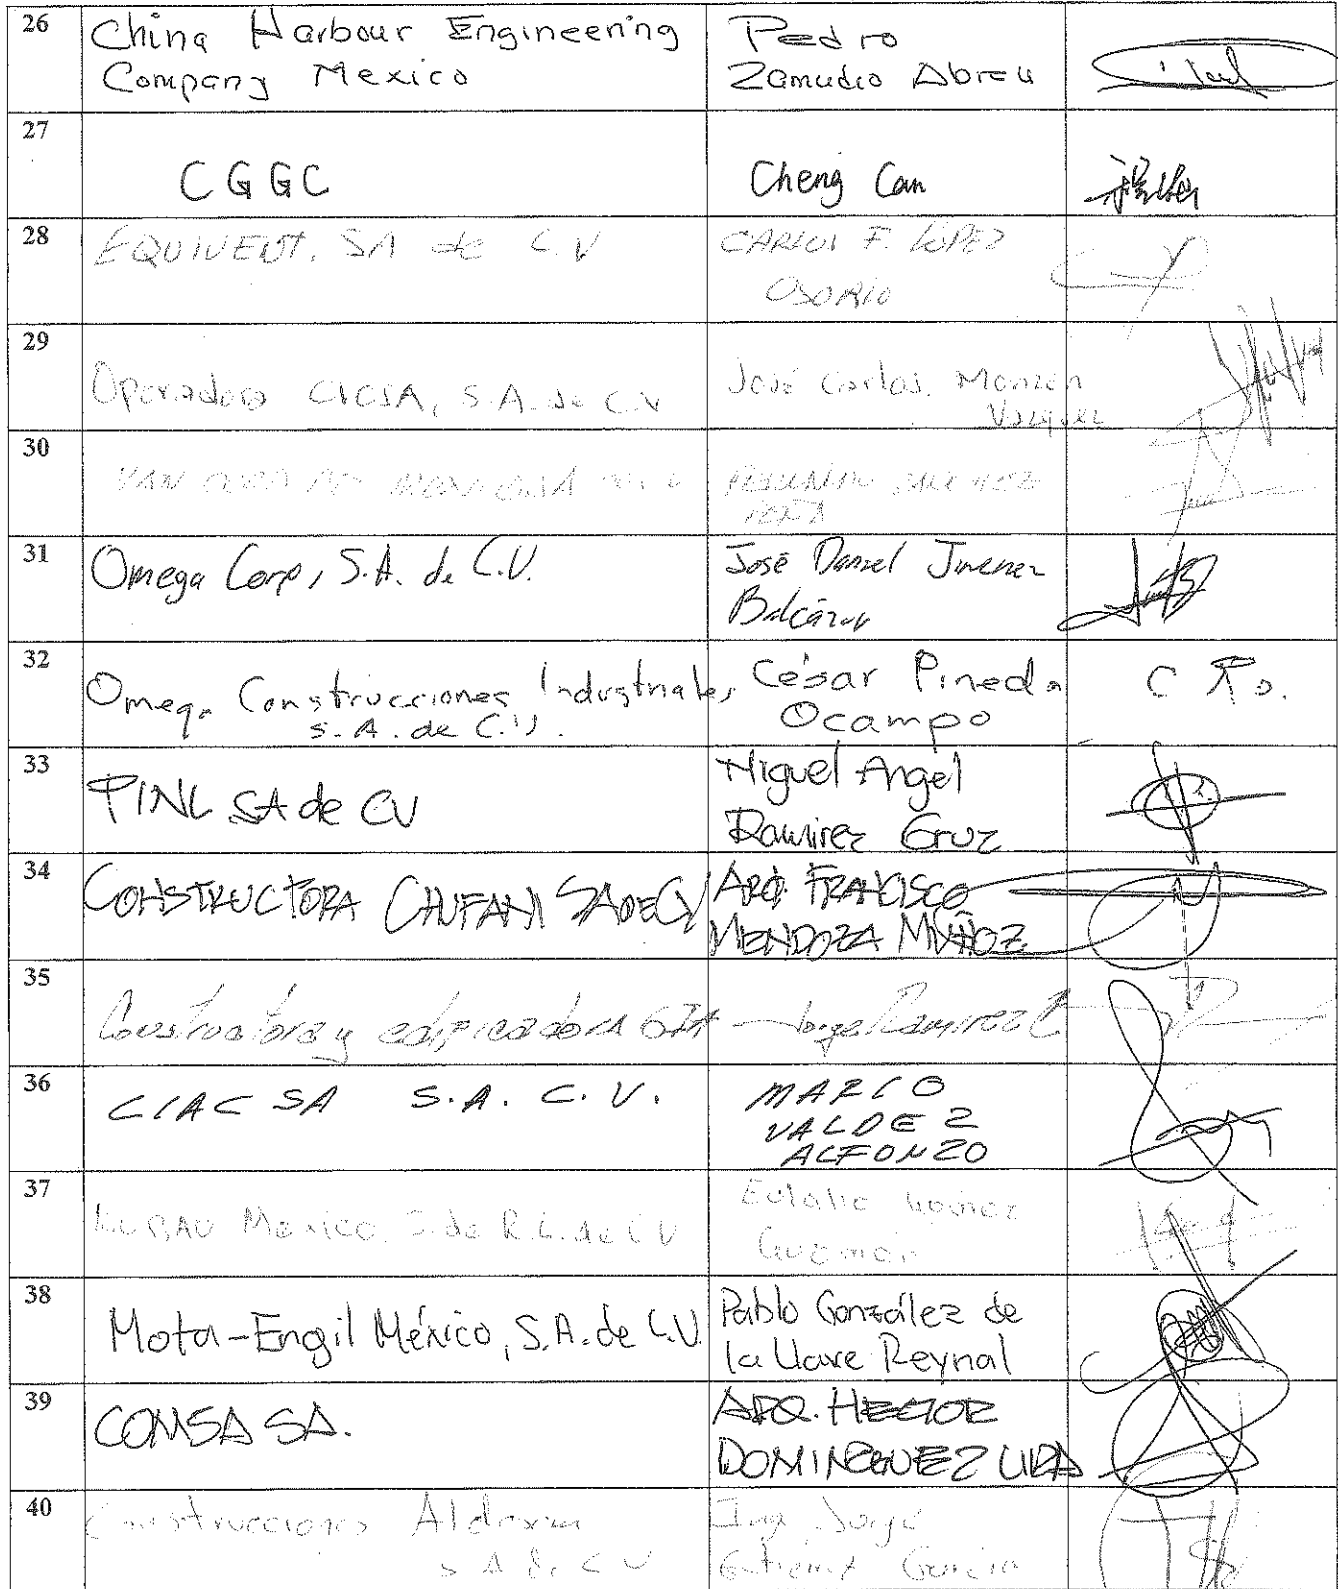 26
China Harbour Engineering
Company Mexico
Pedro
Zamudio Abreu
27
CGGC
Cheng Can
28
EQUIVENT. SA de C.V
CARLOS F. LÓPEZ
OSORIO
29
Operadora CICSA, S.A. de C.V
José Carlos. Monzon
Vazquez
30
31
Omega Corp, S.A. de C.V.
José Daniel Jimenez
Balcázar
32
Omega Construcciones Industriales
S.A. de C.V.
César Pineda
Ocampo
33
PINL SA de CV
Miguel Angel
Ramirez Cruz
34
CONSTRUCTORA CHUFANI SA DE CV
ARQ. FRANCISCO
MENDOZA MUÑOZ
35
Constructora y edificadora GIA
Jorge Ramirez C
36
CIAC SA S.A. C.V.
MARIO
VALDEZ
ALFONZO
37
Mexico S. de R.L. de C V
Eulalio Gomez
Guzman
38
Mota-Engil México, S.A. de C.V.
Pablo González de
la Llave Reynal
39
COMSA SA.
ARQ. HECTOR
DOMINGUEZ LIRA
40
Construcciones Aldesem
S A de C V
Ing Jorge
Gutierrez Garcia